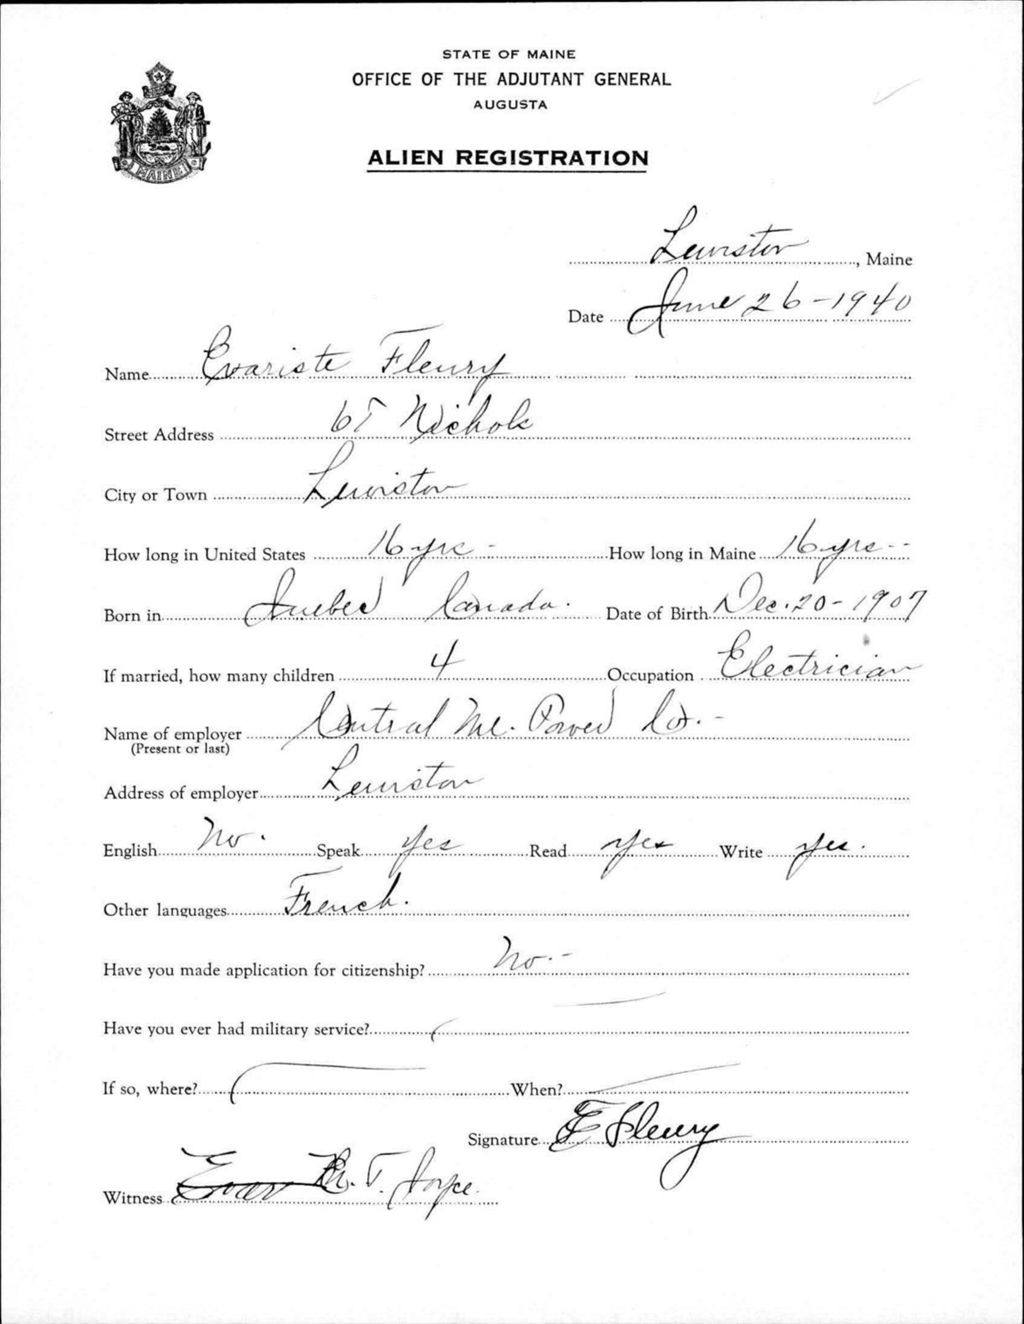 STATE OF MAINE
OFFICE OF THE ADJUTANT GENERAL
AUGUSTA
ALIEN REGISTRATION
MAINE
Lewiston, Maine
Date June 26-1940
Name Evariste Fleury
Street Address Nichols
City or Town Lewiston
How long in United States 16 yrs - How long in Maine 16 yrs --
Born in Quebec Canada. Date of Birth Dec. 20-1907
If married, how many children 4 Occupation Electrician
Name of employer Central Me. Power Co. -
(Present or last)
Address of employer Lewiston
English No. Speak Yes Read Yes Write Yes.
Other languages French.
Have you made application for citizenship? No. -
Have you ever had military service?
If so, where? When?
Signature E Fleury
Witness T. Joyce.